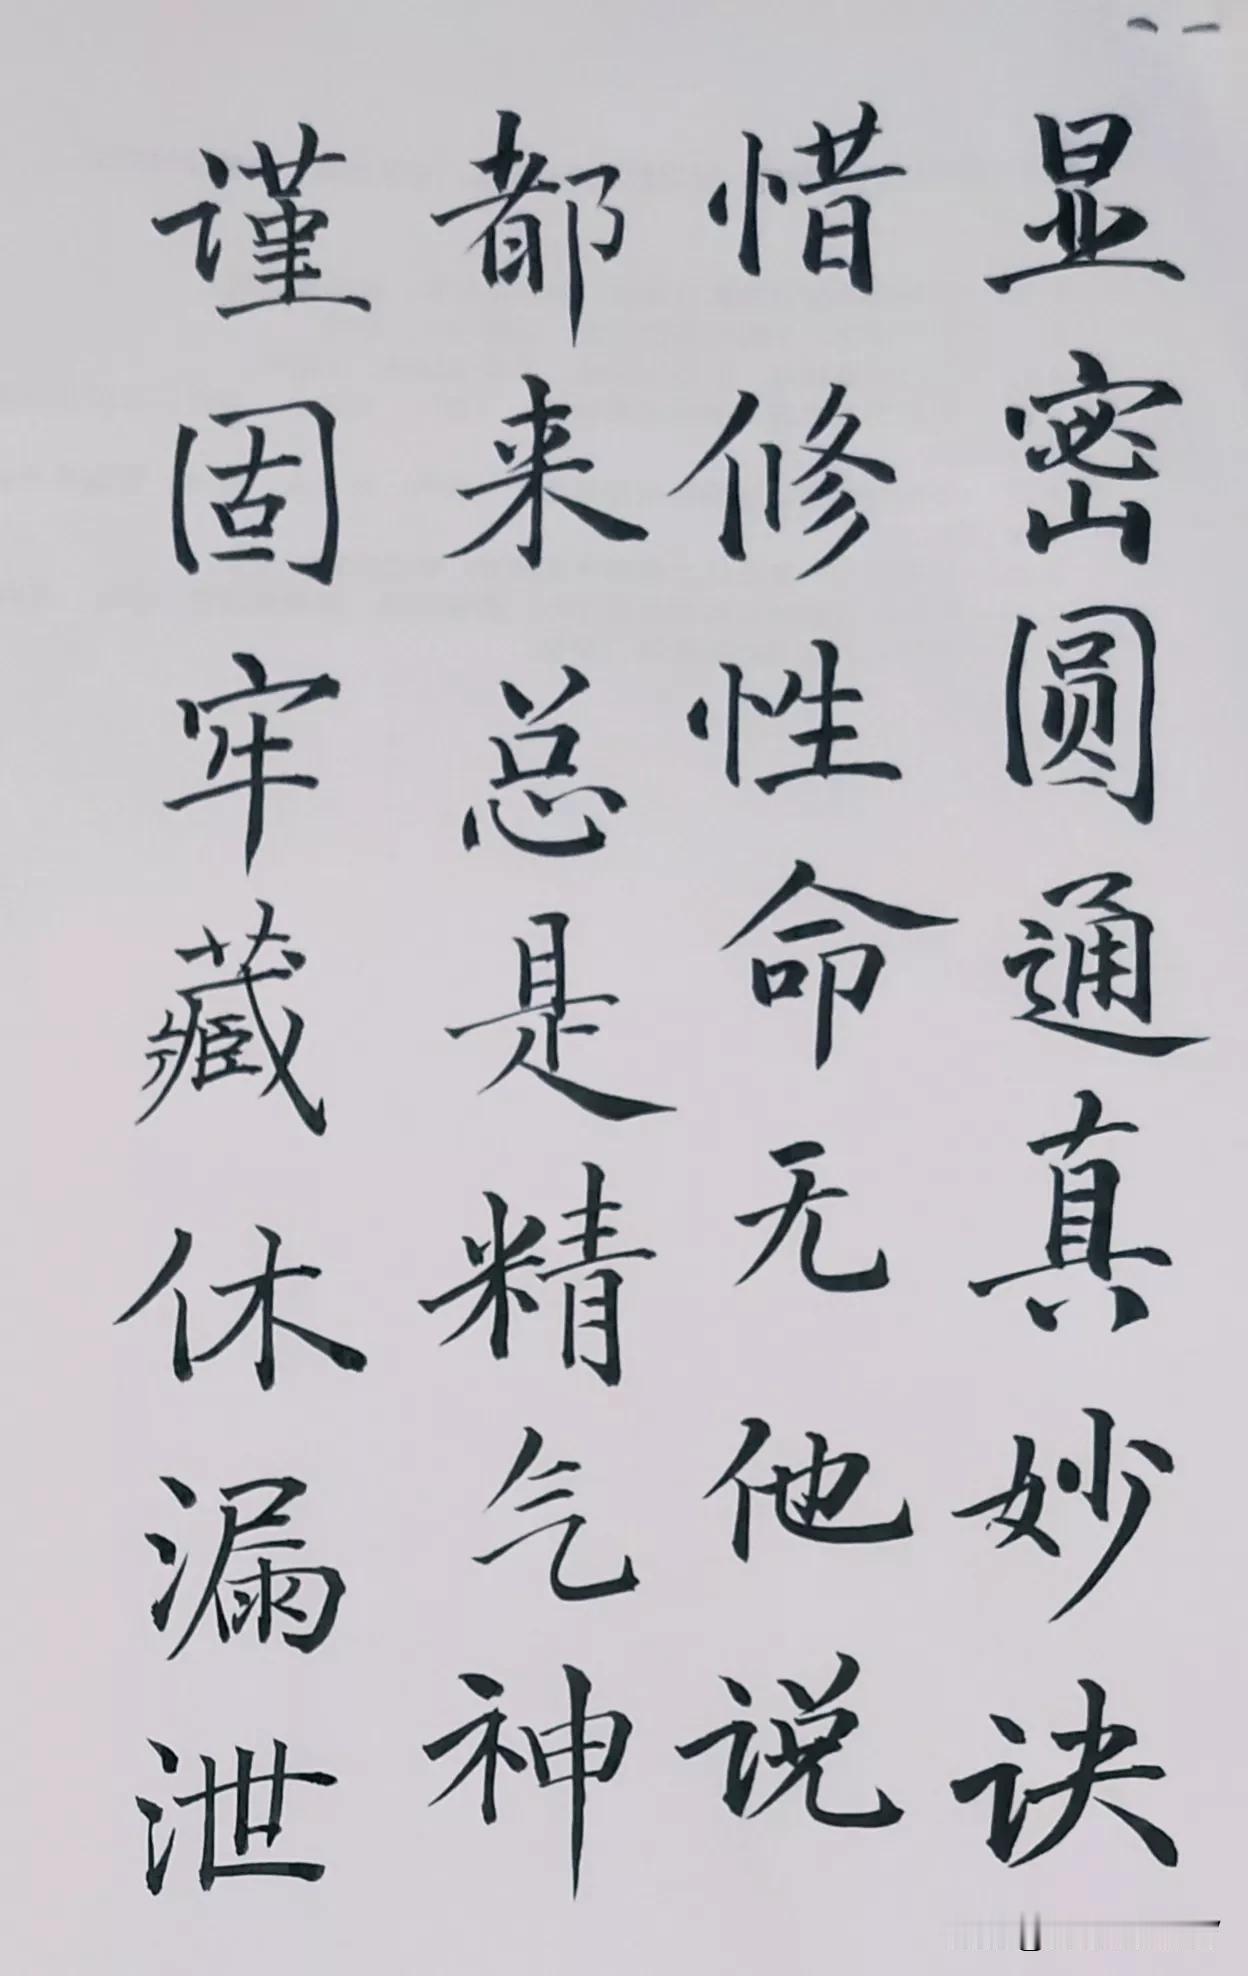 显密圆通真妙诀
惜修性命无他说
都来总是精气神
谨固牢藏休漏泄